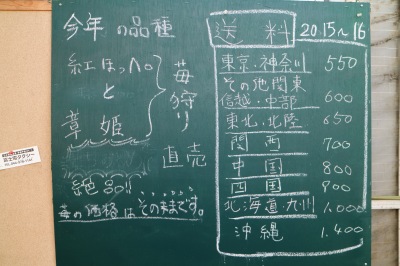 今年の品種
紅ほっぺ
と
章姫
苺狩り
直売
絶品!!
苺の価格はそのままです。
送料 2015~16
東京・神奈川 550
その他関東
信越・中部 600
東北・北陸 650
関西 700
中国 800
四国 800
北海道・九州 1,000
沖縄 1,400
富士宮タクシー